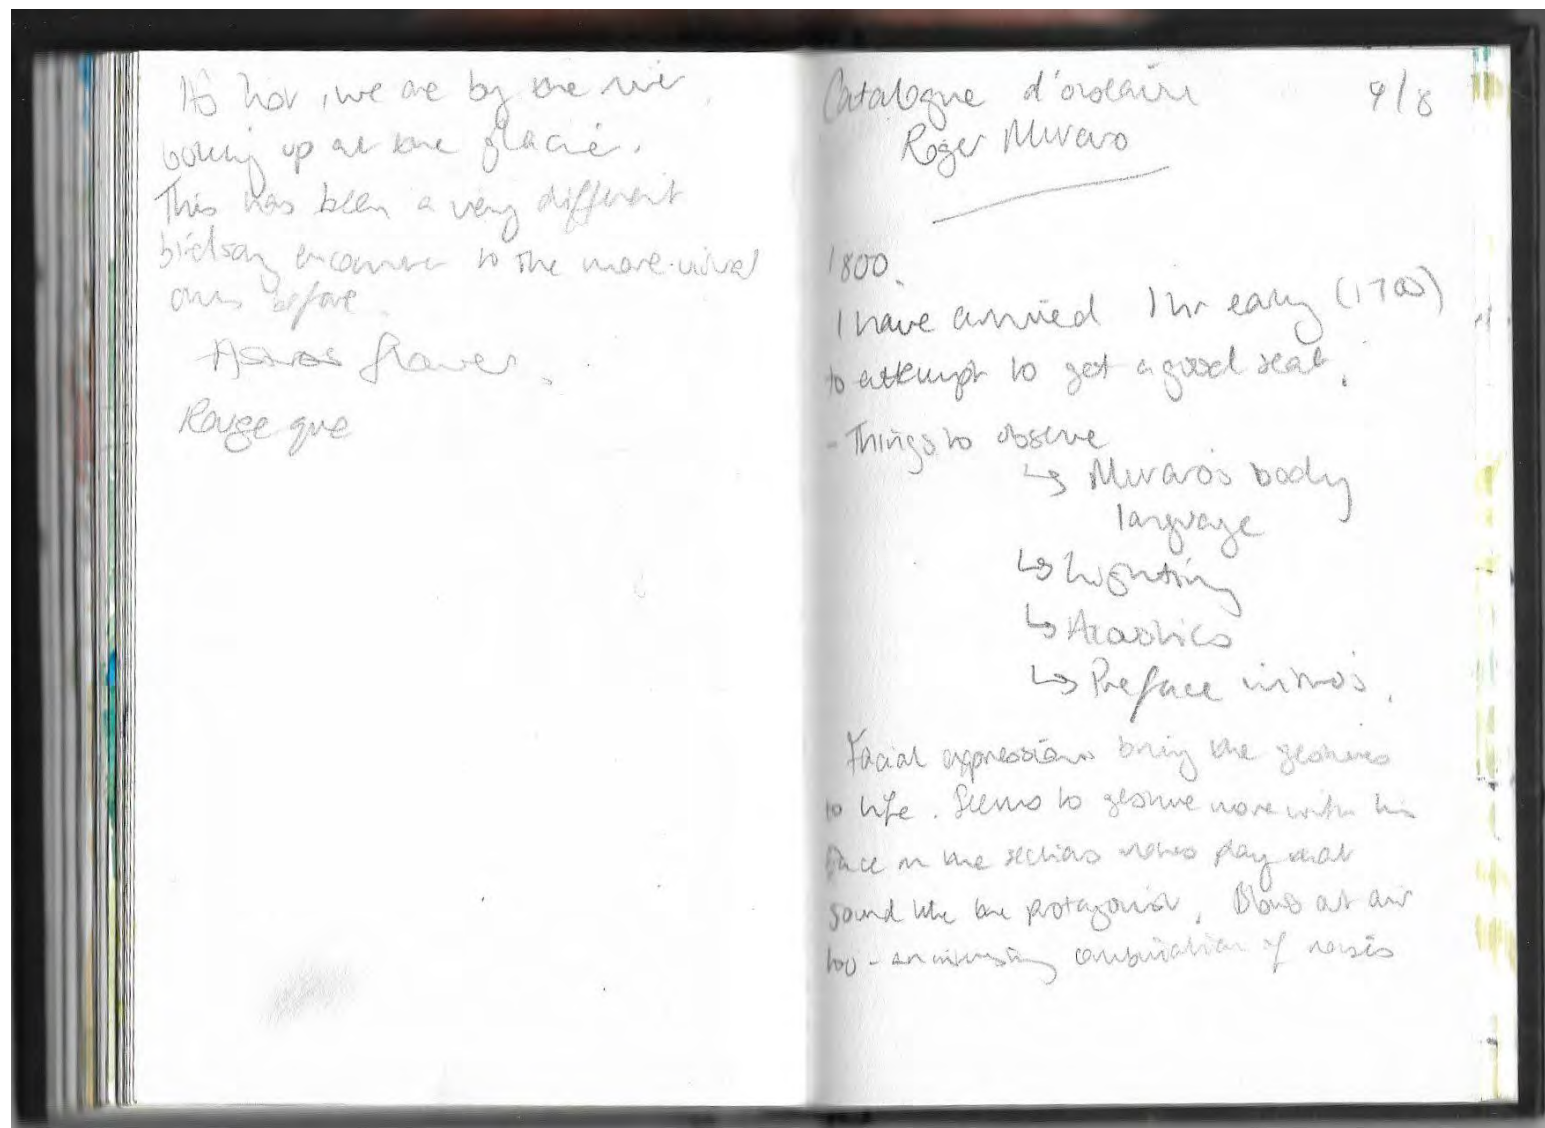 It's hot, we are by the river,
looking up at the glacier.
This has been a very different
birdsong encounter to the more-visual
ones before.
flower.
Rouge que
Catalogue d'oiseaux 9/8
Roger Muraro
1800.
I have arrived 1 hr early (1700)
to attempt to get a good seat.
- Things to observe
↳ Muraro's body
language
↳ Lighting
↳ Acoustics
↳ Preface intro's.
Facial expressions bring the gestures
to life. Seems to gesture more with his
face in the sections play that
sound like the protagonist. Blows out air
too - an interesting combination of noises